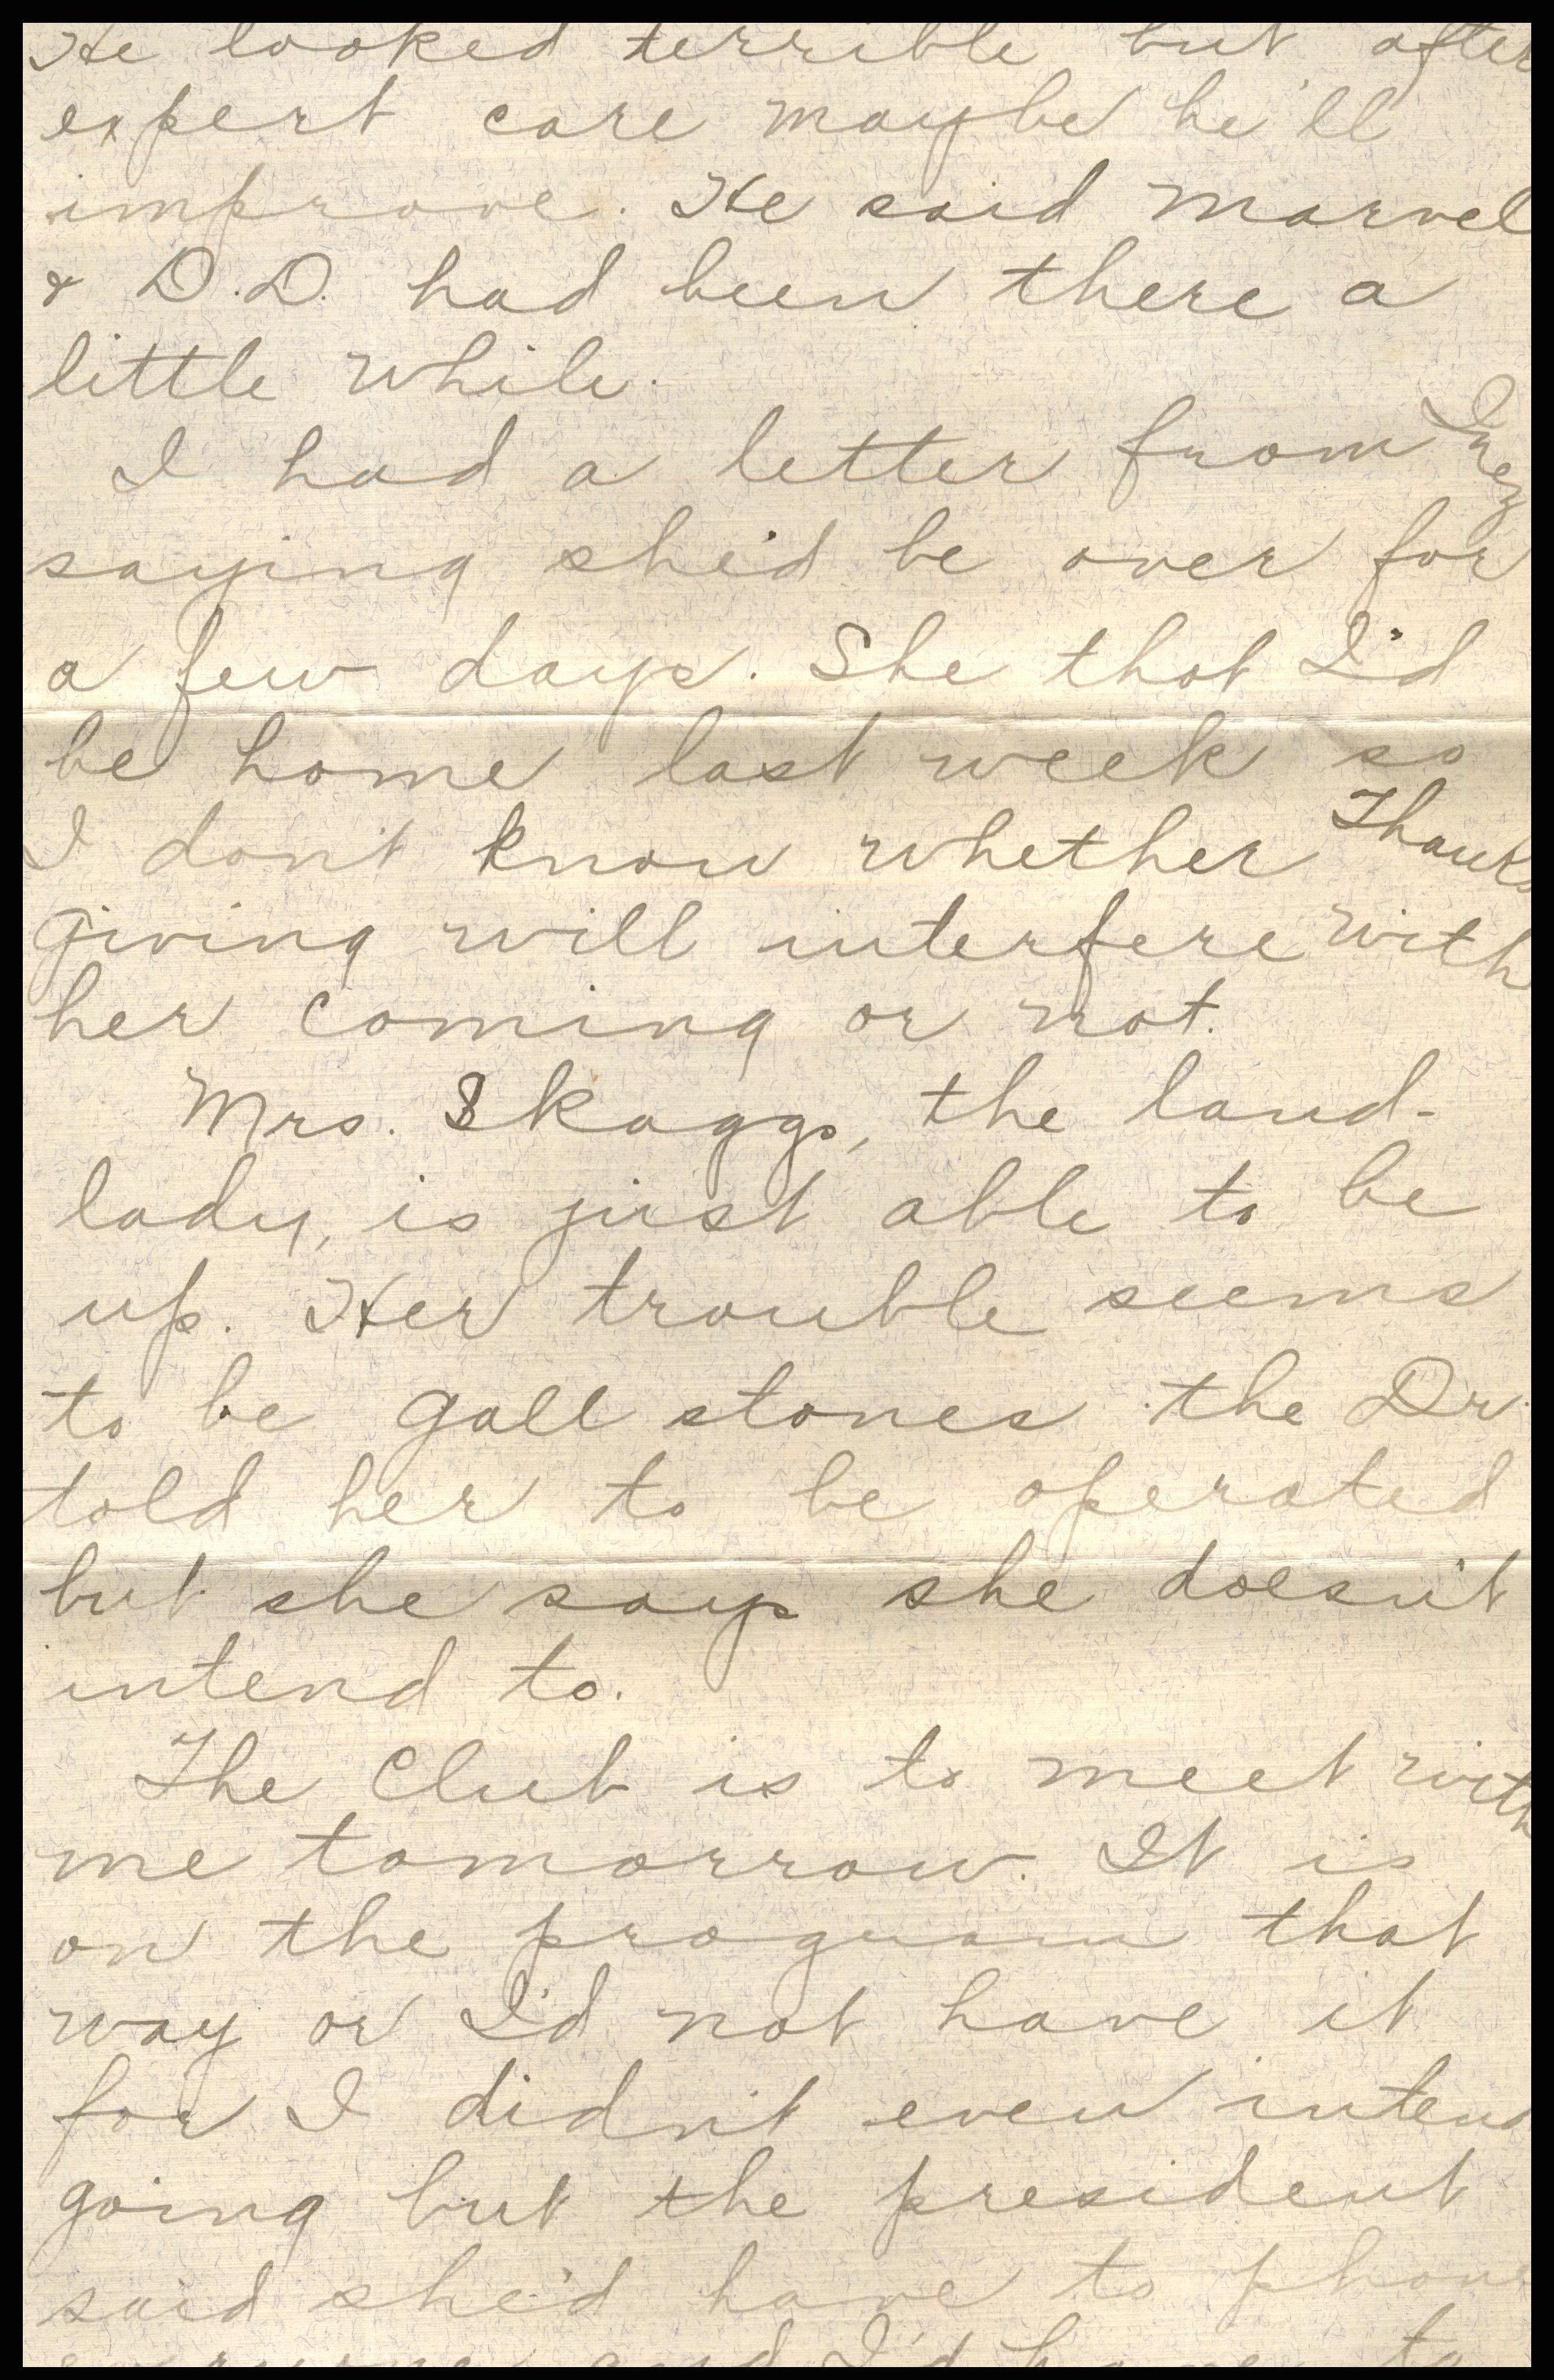 He looked terrible but after
expert care maybe he'll
improve. He said Marvel
& D.D. had been there a
little while.
I had a letter from Inez
saying she'd be over for
a few days. She thot I'd
be home last week so
I don't know whether Thanks
giving will interfere with
her coming or not.
Mrs. Skaggs, the land-
lady, is just able to be
up. Her trouble seems
to be gall stones the Dr.
told her to be operated
but she says she doesn't
intend to.
The Club is to meet with
me tomorrow. It is
on the program that
way or I'd not have it
for I didn't even intend
going but the president
said she'd have to phone
everyone and I'd have to